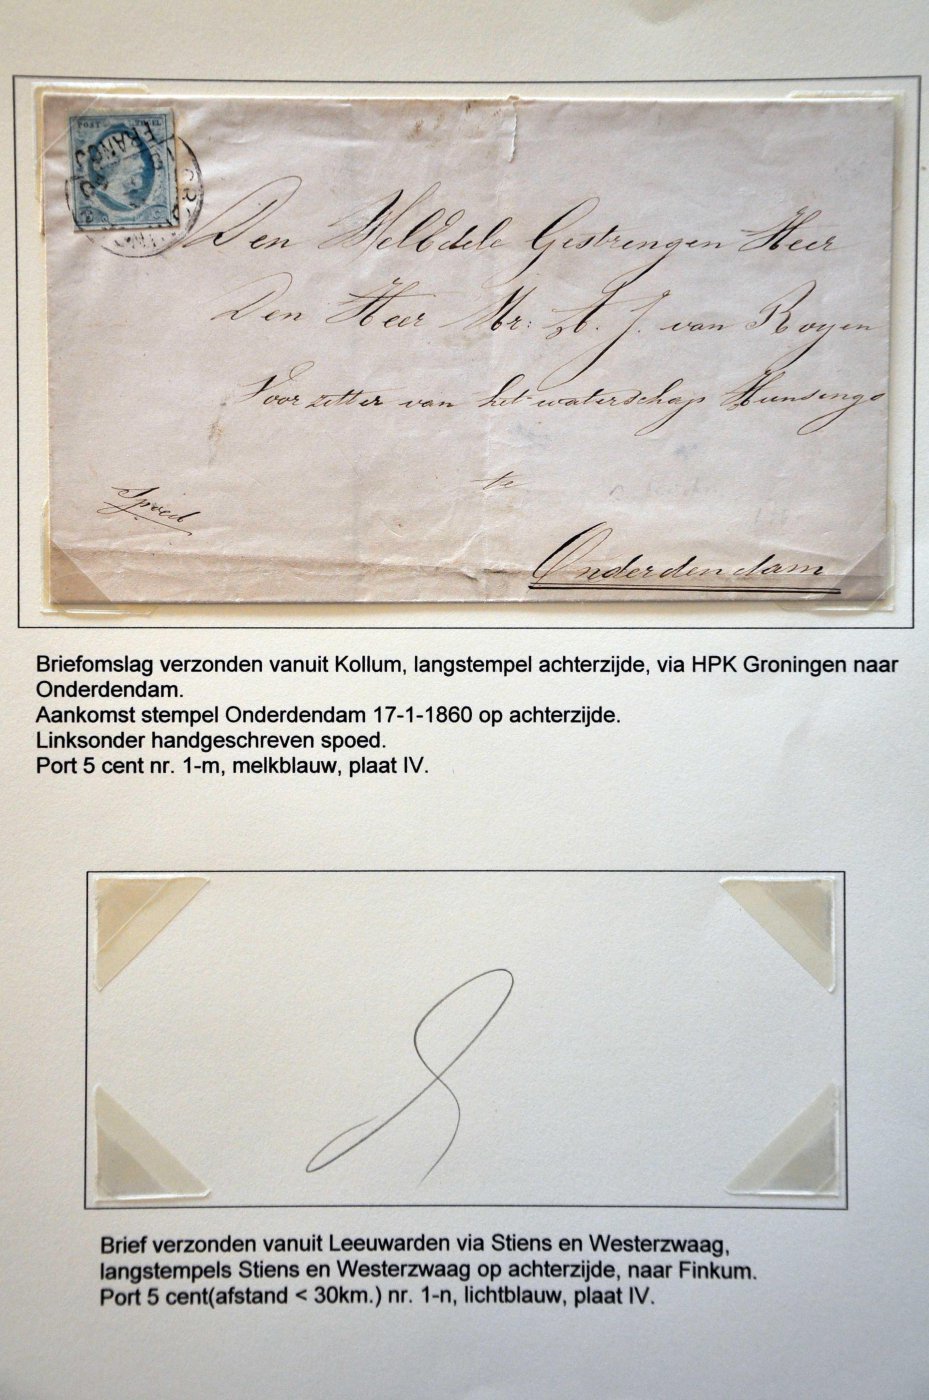 POST ZEGEL
FRANCO
Den WelEdele Gestrengen Heer
Den Heer Mr: A. J. van Royen
Voorzitter van het waterschap Hunsingo
te
Spoed
Onderdendam
Briefomslag verzonden vanuit Kollum, langstempel achterzijde, via HPK Groningen naar
Onderdendam.
Aankomst stempel Onderdendam 17-1-1860 op achterzijde.
Linksonder handgeschreven spoed.
Port 5 cent nr. 1-m, melkblauw, plaat IV.
Brief verzonden vanuit Leeuwarden via Stiens en Westerzwaag,
langstempels Stiens en Westerzwaag op achterzijde, naar Finkum.
Port 5 cent(afstand < 30km.) nr. 1-n, lichtblauw, plaat IV.